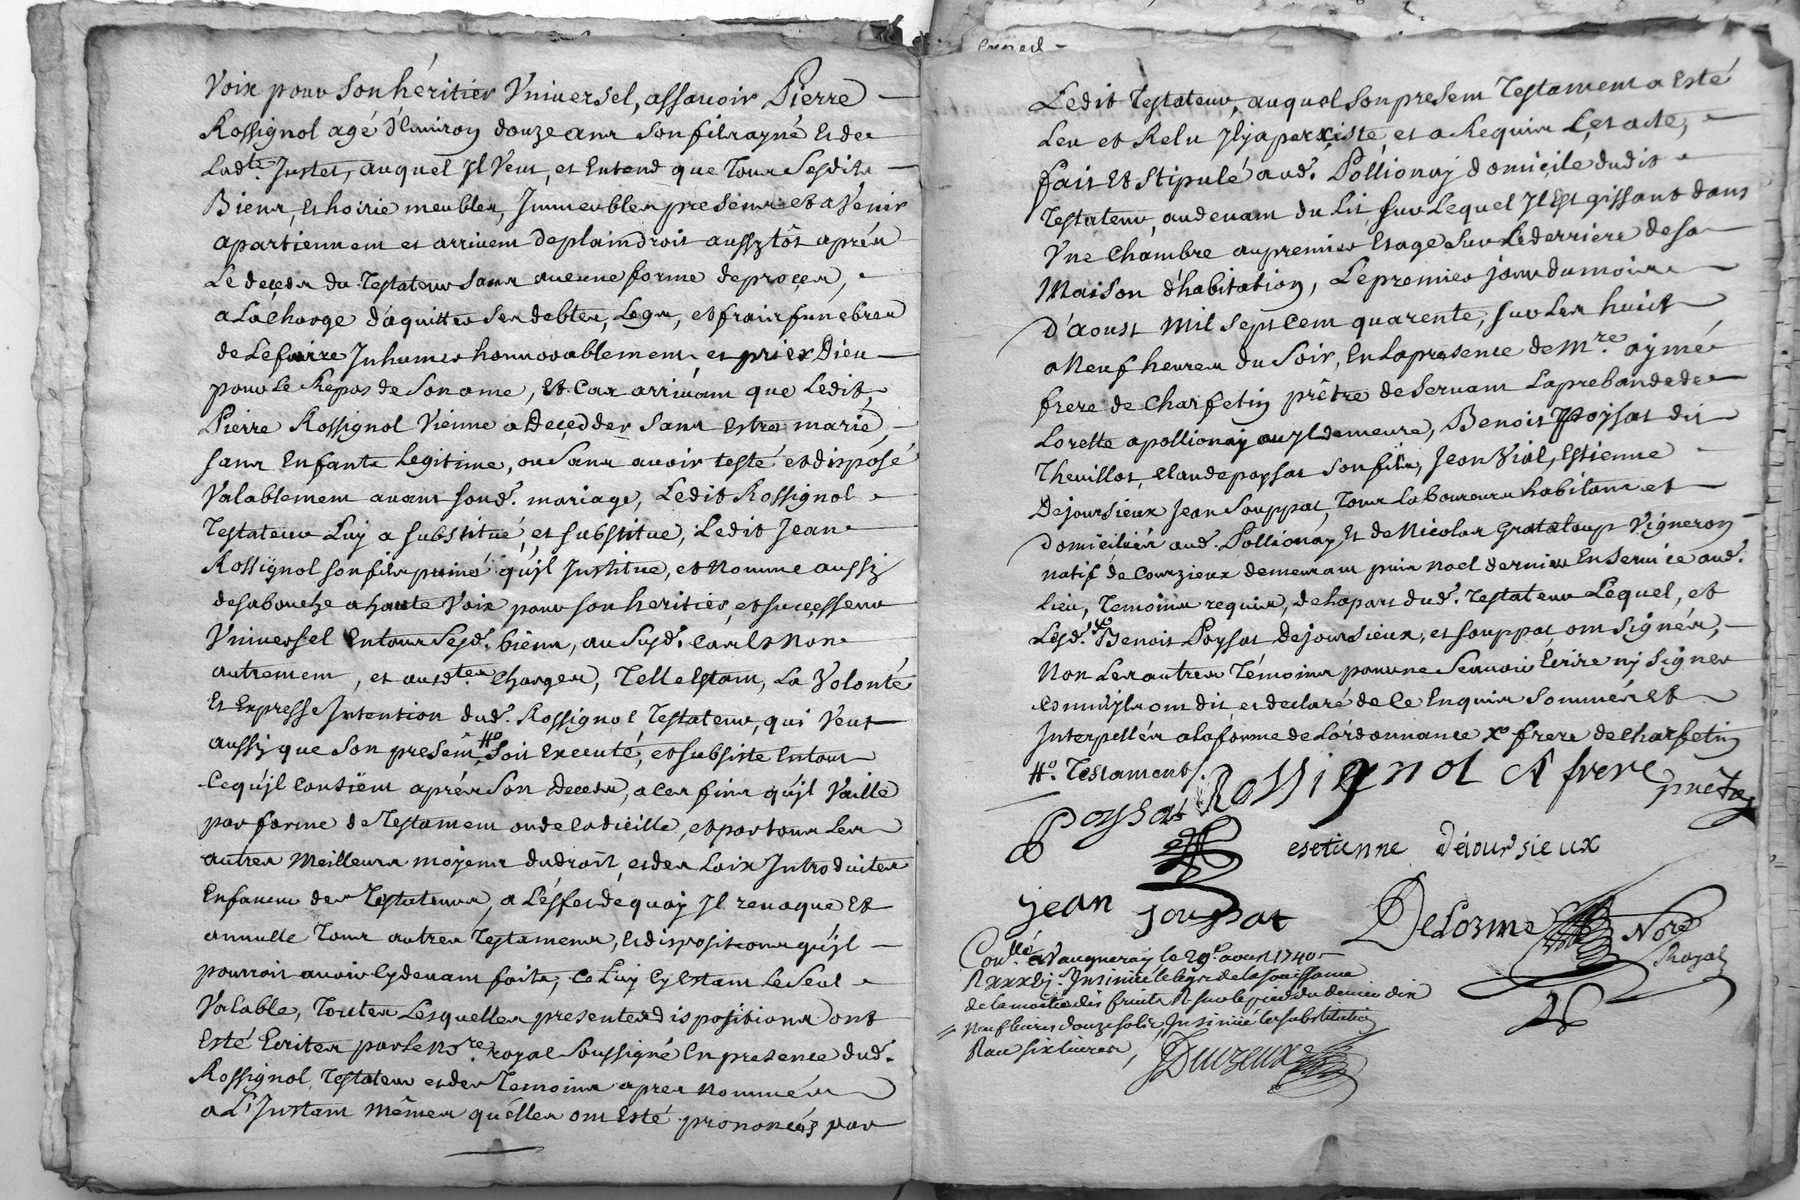 Voix pour son héritier Vniversel, assavoir Pierre
Rossignol agé d'Environ douze ans son fils ayné et de
Ladte. Justet, auquel Jl Veut, et Entend que Tous Sesdits
Biens, Et hoirie meubles, Jmmeubles presens et avenir
apartiennent et arrivent de plain droit aussytôt aprés
Le deçeds du Testateur sans aucune forme de proçes,
a La Charge d'aquitter ses debtes, Legs, et frais funebres
de Le faire Jnhumer honnorablement et prier Dieu
pour Le Repos de Son ame, Et Cas arrivant que Ledit,
Pierre Rossignol Vienne a Deçedder sans Estre marié,
sans Enfants Legitime, ou sans avoir testé et disposé
Valablement avant sond. mariage, Ledit Rossignol
Testateur Luy a substitué, et substitue, Ledit Jean
Rossignol son fils puiné qu'jl Jnstitue, et Nomme aussy
de sa bouche a haute Voix pour son heritier, et suçcesseur
Vniversel En tous Sesd. biens, au Susd. Cas Et Non
autrement, et ausdtes Charges, Telle Estant, La Volonté
Et Expresse Jntention dud. Rossignol Testateur, qui Veut
aussy que Son present #o Soit Executé, et subsiste En tout
Ce qu'jl Contient aprés Son Decds, a Ces fins qu'jl Vaille
par forme de Testament ou de Codicille, et par tous Les
autres Meilleurs moyens du droit, et des Loix Jntroduites
En faveur des Testateurs, a L'éffet de quoy Jl revoque Et
annulle Tous autres Testamens, Et dispositions qu'jl
pourroit avoir Cy devant faits, Ce Luy Cy Estant Le Seul
Valable, Toutes Lesquelles presentes dispositions ont
Esté Ecrites par Le Nore. royal Soussigné En presence dud.
Rossignol Testateur et des Temoins aprés nommés
a L'Jnstant Mêmes qu'élles ont Esté prononcés par
Ledit Testateur, auquel son present Testament a Esté
Leu et Relu Jl y a perxisté, et a Requis Çet acte,
fait Et Stipulé aud. Pollionay domiçile dudit
Testateur, au devant du Lit sur Lequel Jl Est gissant dans
Vne Chambre au premier Etage Sur Le derriere de sa
Maison d'habitation, Le premier jour du mois
d'aoust Mil Sept Cent quarente, sur Les huit
a Neuf heures du Soir, En La presence de Mre. aymé
frere de Charfetin prêtre deServant La prebande de
Lorette a pollionay ou jl demeure, Benoist Poysat dit
Theuillot, Claude poysat son fils, Jean Vial, Estienne
Dejoursieux Jean Souppat, Tous Laboureurs habitans et
domiciliés aud. Pollionay Et de Nicolas Grataloup Vigneron
natif de Courzieux demeurant puis noel dernier En Service aud.
Lieu, Temoins requis, de La part dud. Testateur Lequel, et
Lesd. Xo Benoist Poysat Dejoursieux, et souppat ont Signés,
Non Les autres Témoins pour ne Scavoir Ecrire ny Signer
Comm'jls ont dit, et declaré de Ce Enquis Sommés Et
Jnterpellés a La forme de L'órdonnance Xo frere de Charfetin
#o. Testament.
Rossignol A frere prêtre
Poysat
esetianne déjoursieux
jean souppat
Delorme Nore Royal
Conllé a Vaugneray le 29e. aoust 1740
R xxxvj. Jnsinué le legs de la jouissance
de la moitié des fruits R sur le pied du denier dix
neuf livres douze sols, Jnsinué la substitution
R au six livres,
Duvzeux